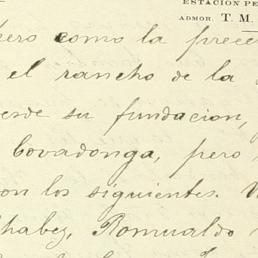 ESTACION PE
ADMOR. T. M.
pero como la prece
el rancho de la
erde su fundacion,
Covadonga, pero
on los siguientes.
habes, Romualdo